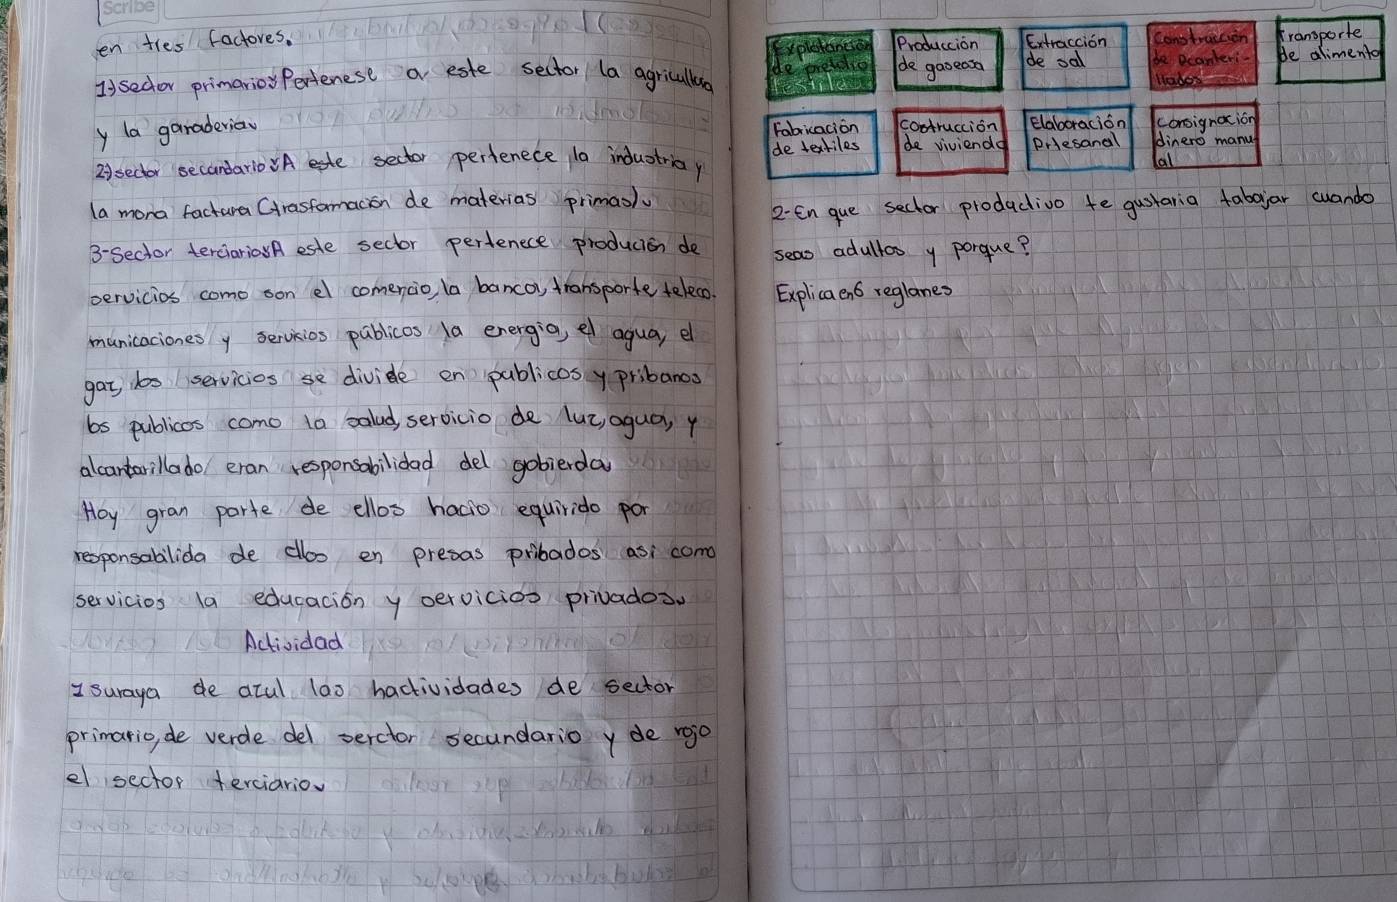 Scribe
en tres factores.
1) Sector primario: Pertenese a este sector la agricultura
y la ganaderia.
2) sector secundario: A este sector pertenece la industria y
la mona factura (trasfamación de materias primas).
3- Sector terciario: A este sector pertenece producion de
servicios como son el comercio, la banca, transporte teleco-
municaciones y servicios públicos la energia, el agua, el
gaz, los servicios se divide en publicos y pribanos
los publicos como la salud, servicio de luz, agua, y
alcantarillado eran responsabilidad del gobierda
Hoy gran parte de ellos hacio equirido por
responsabilida de ellos en presas pribados asi como
servicios la educación y servicios privados.
Actividad
1 suraya de azul las hactividades de sector
primario, de verde del serctor secundario y de rojo
el sector terciario.
de petrolio
Producción
de gaseosa
Extracción
de sal
Construcción
de
llados
transporte
de alimento
Fabricación
de textiles
contrucción
de vivienda
Elaboración
Artesanal
Consignación
dinero manu
al
2- En que sector productivo te gustaria tabajar cuando
seas adultos y porque?
Explica en 6 reglanes